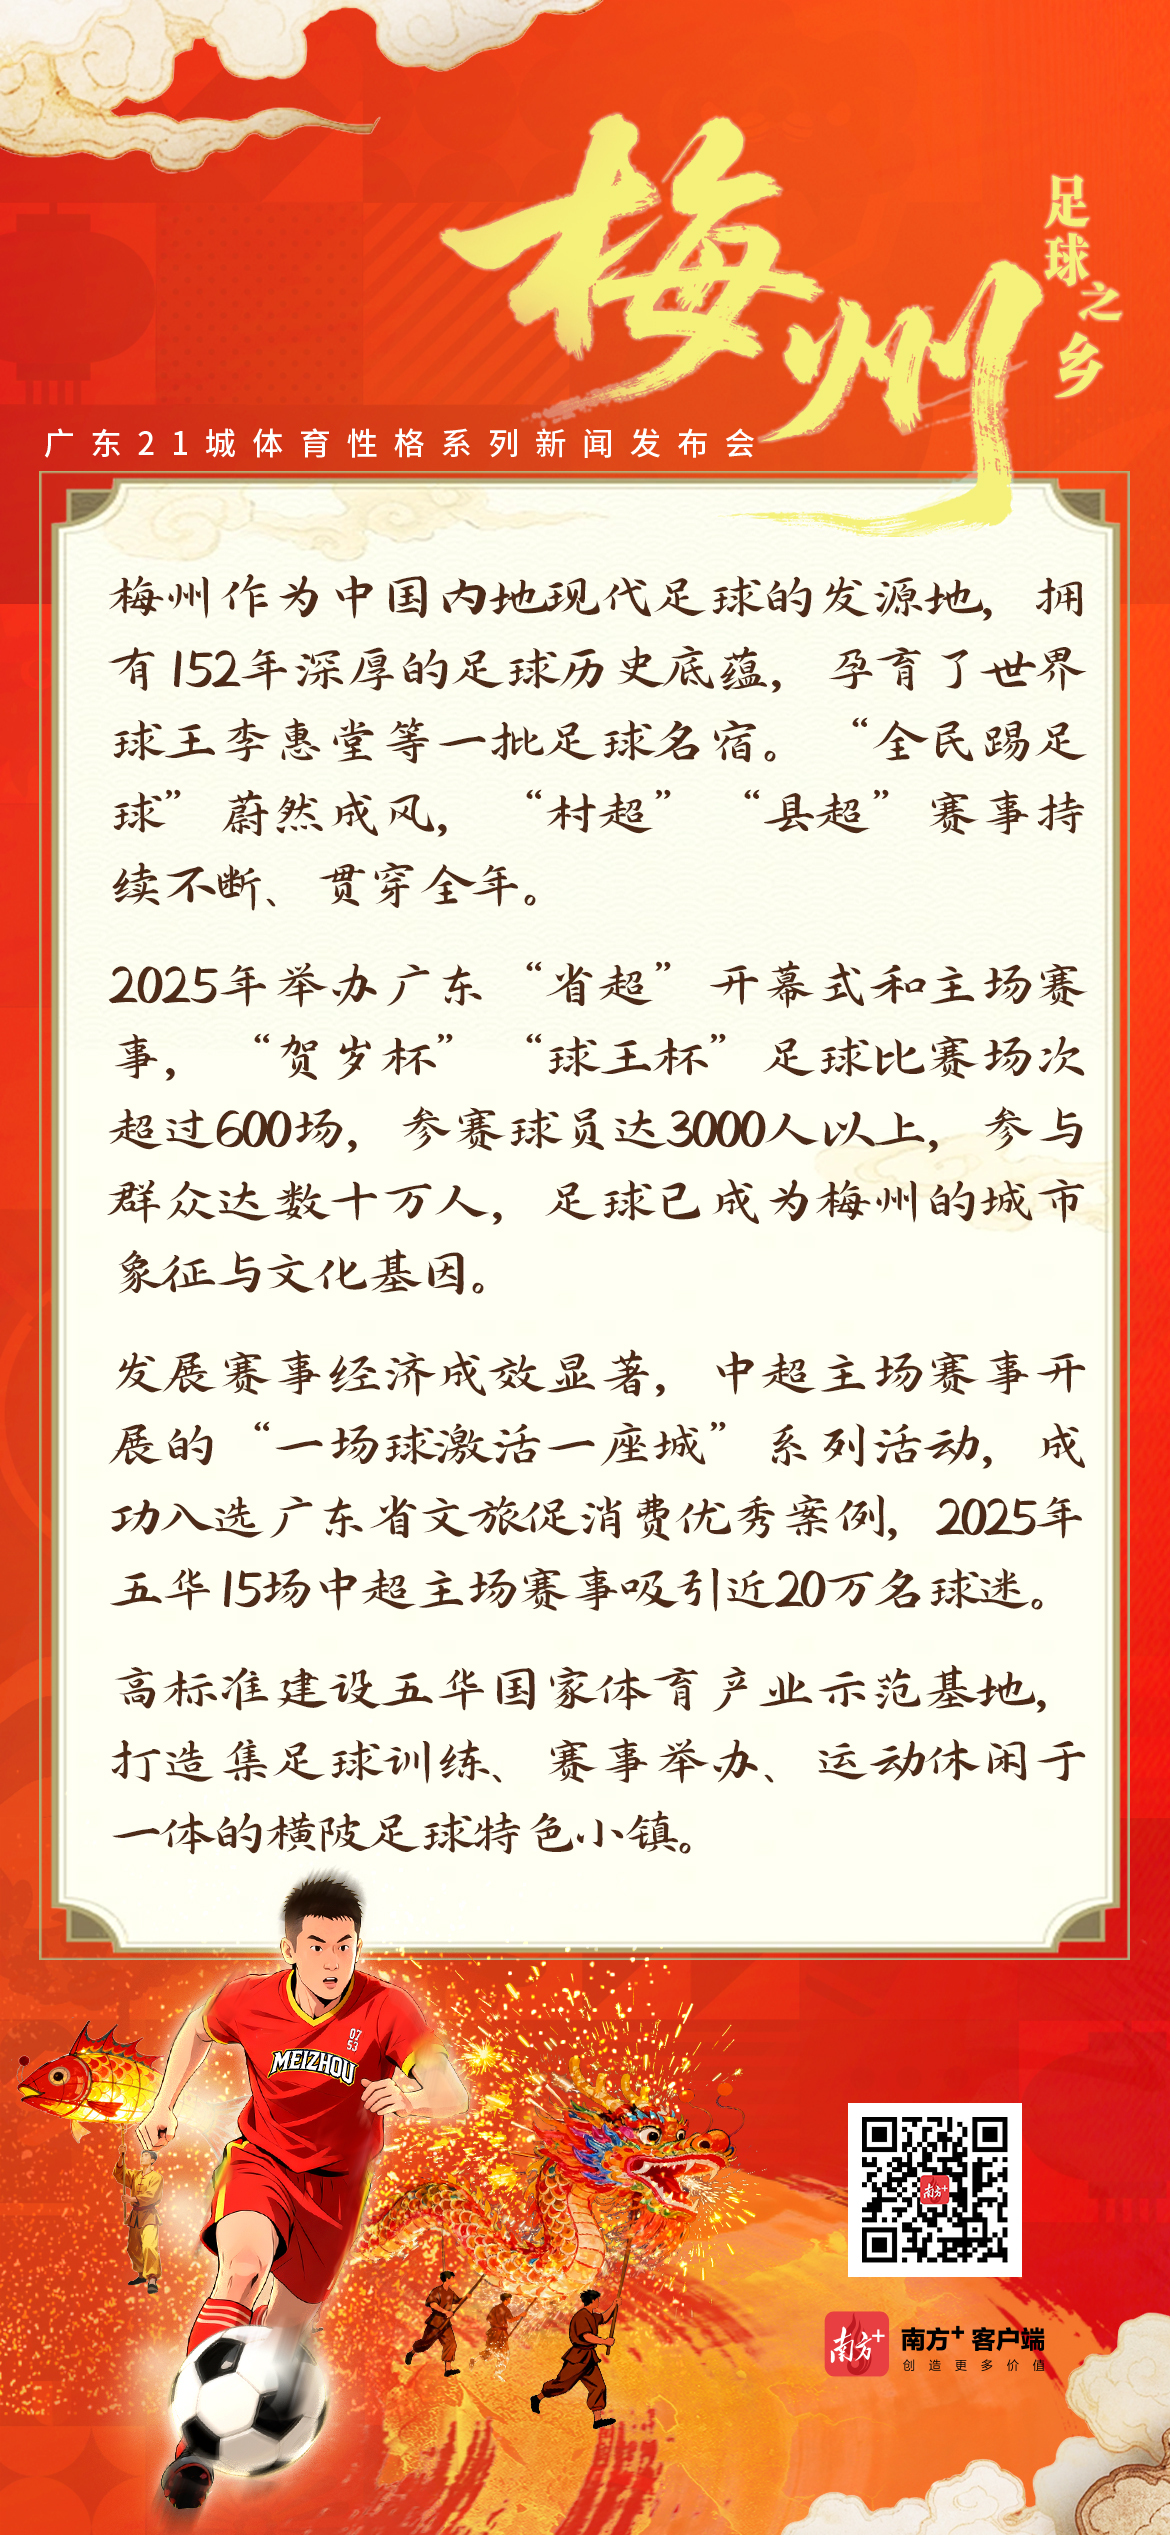 梅州
足球之乡
广东21城体育性格系列新闻发布会
梅州作为中国内地现代足球的发源地，拥
有152年深厚的足球历史底蕴，孕育了世界
球王李惠堂等一批足球名宿。“全民踢足
球”蔚然成风，“村超”“县超”赛事持
续不断、贯穿全年。
2025年举办广东“省超”开幕式和主场赛
事，“贺岁杯”“球王杯”足球比赛场次
超过600场，参赛球员达3000人以上，参与
群众达数十万人，足球已成为梅州的城市
象征与文化基因。
发展赛事经济成效显著，中超主场赛事开
展的“一场球激活一座城”系列活动，成
功入选广东省文旅促消费优秀案例，2025年
五华15场中超主场赛事吸引近20万名球迷。
高标准建设五华国家体育产业示范基地，
打造集足球训练、赛事举办、运动休闲于
一体的横陂足球特色小镇。
07
53
MEIZHOU
南方+
南方+
南方+ 客户端
创造更多价值